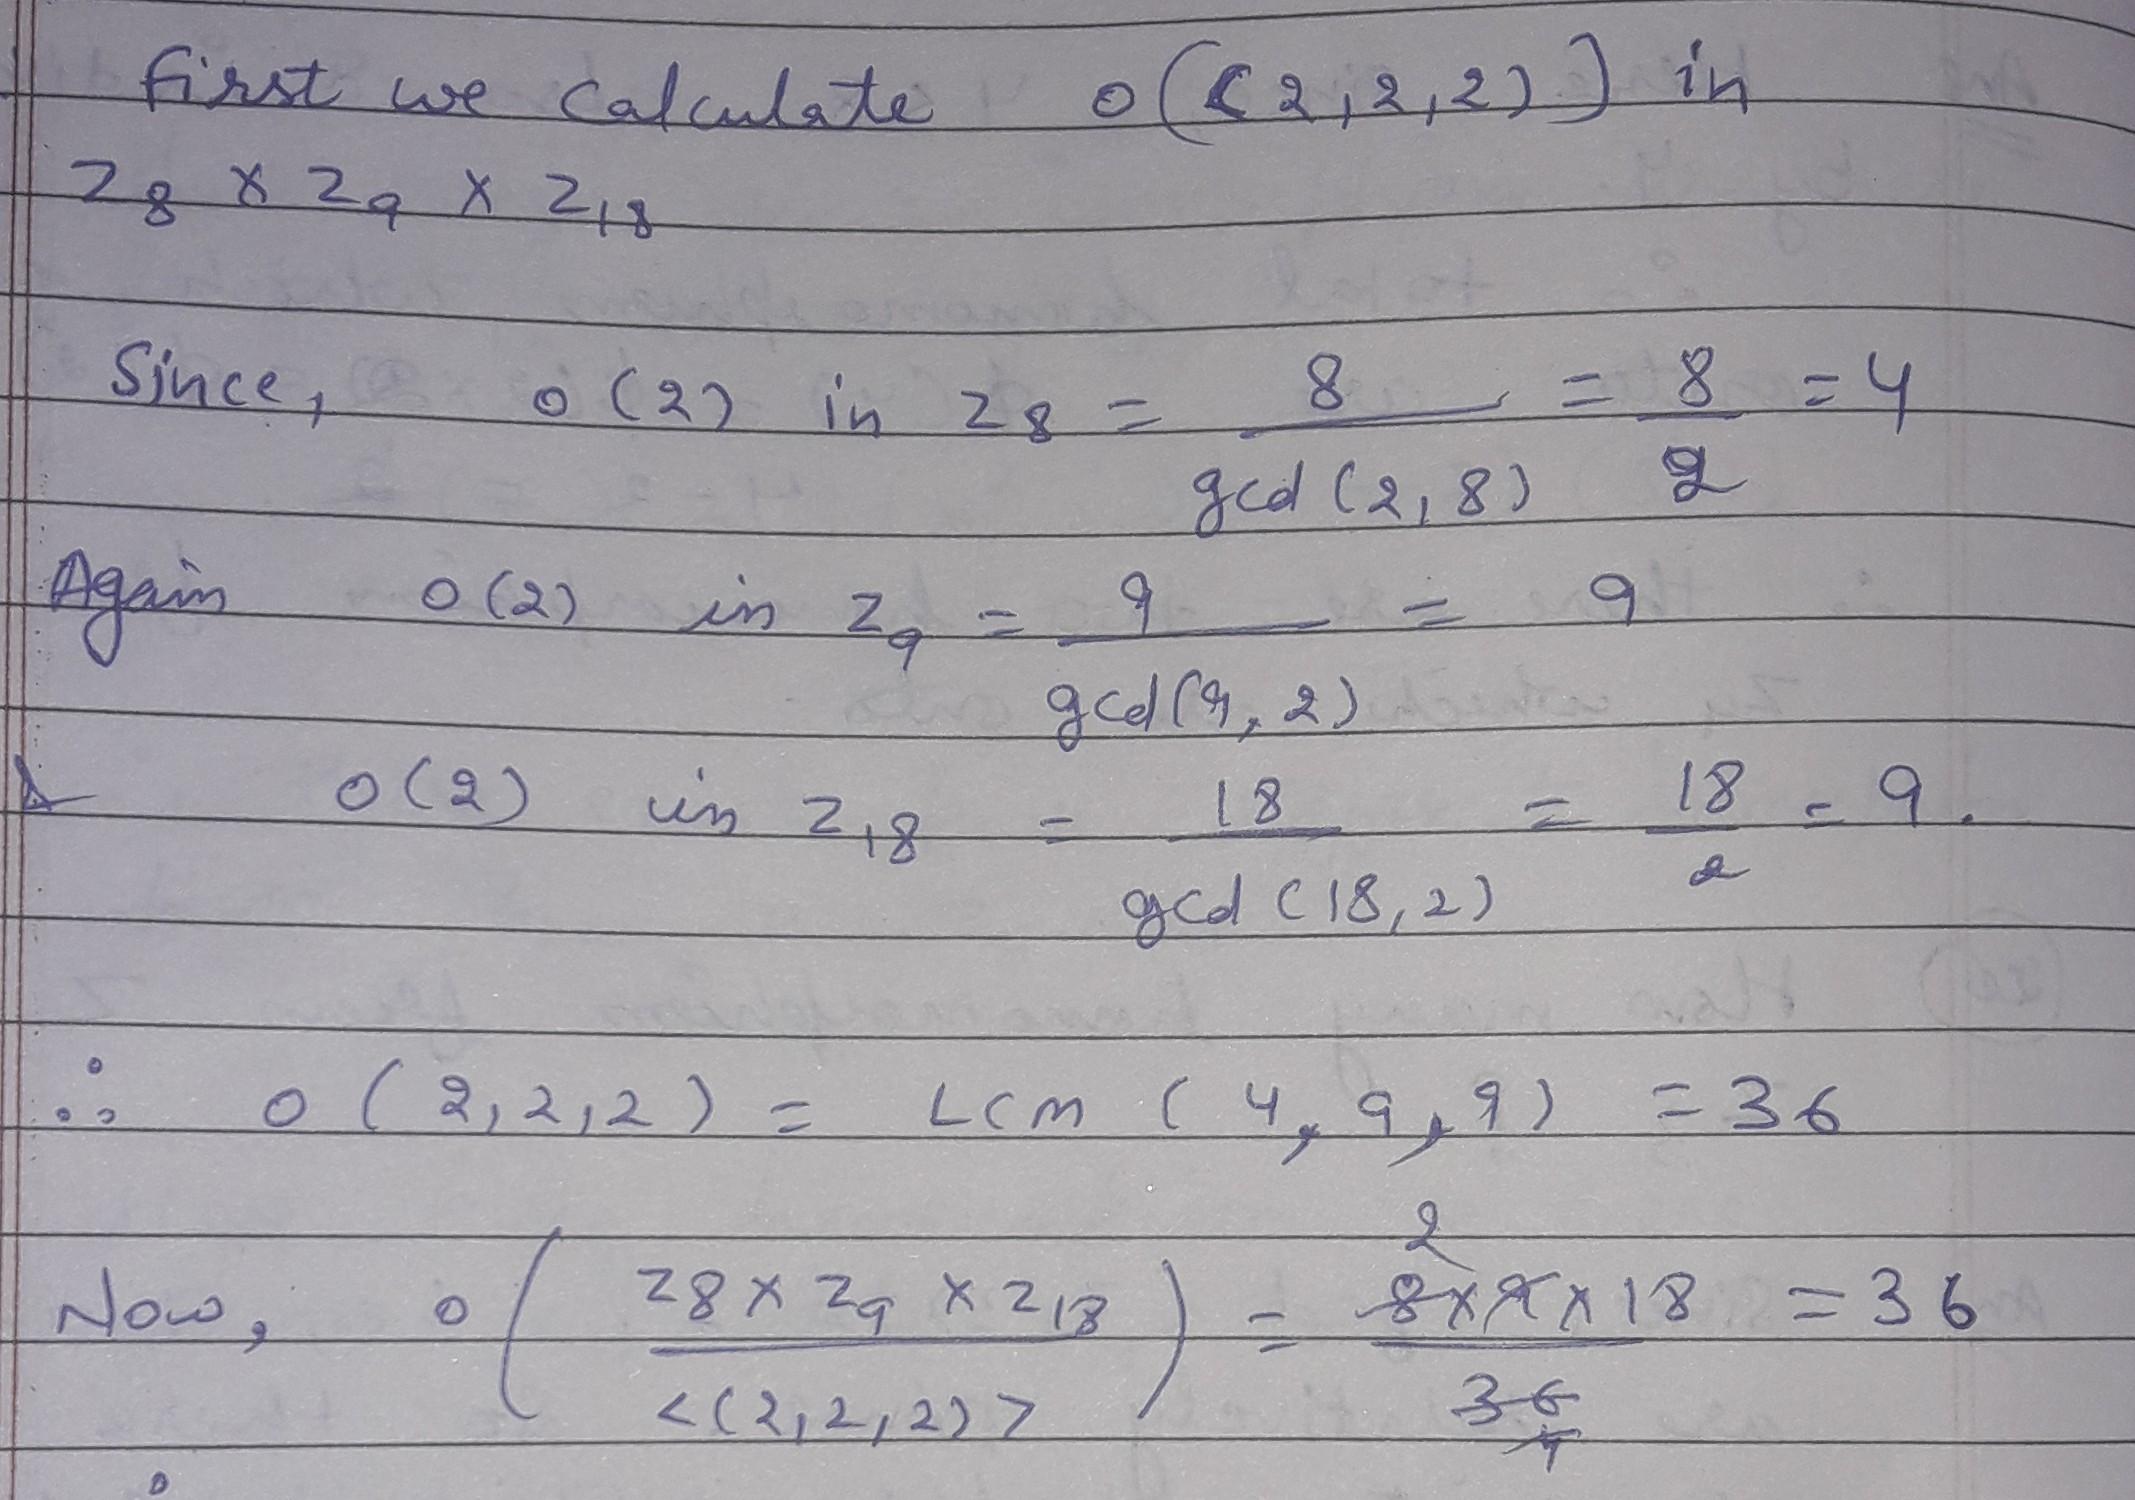 first we calculate o((2,2,2)) in
Z8 × Z9 × Z18
Since, o(2) in Z8 = 8/gcd(2,8) = 8/2 = 4
Again o(2) in Z9 = 9/gcd(9,2) = 9
& o(2) in Z18 = 18/gcd(18,2) = 18/2 = 9.
∴ o(2,2,2) = LCM (4,9,9) = 36
Now, o(Z8 × Z9 × Z18/<(2,2,2)>) = 8×9×18/36 = 36